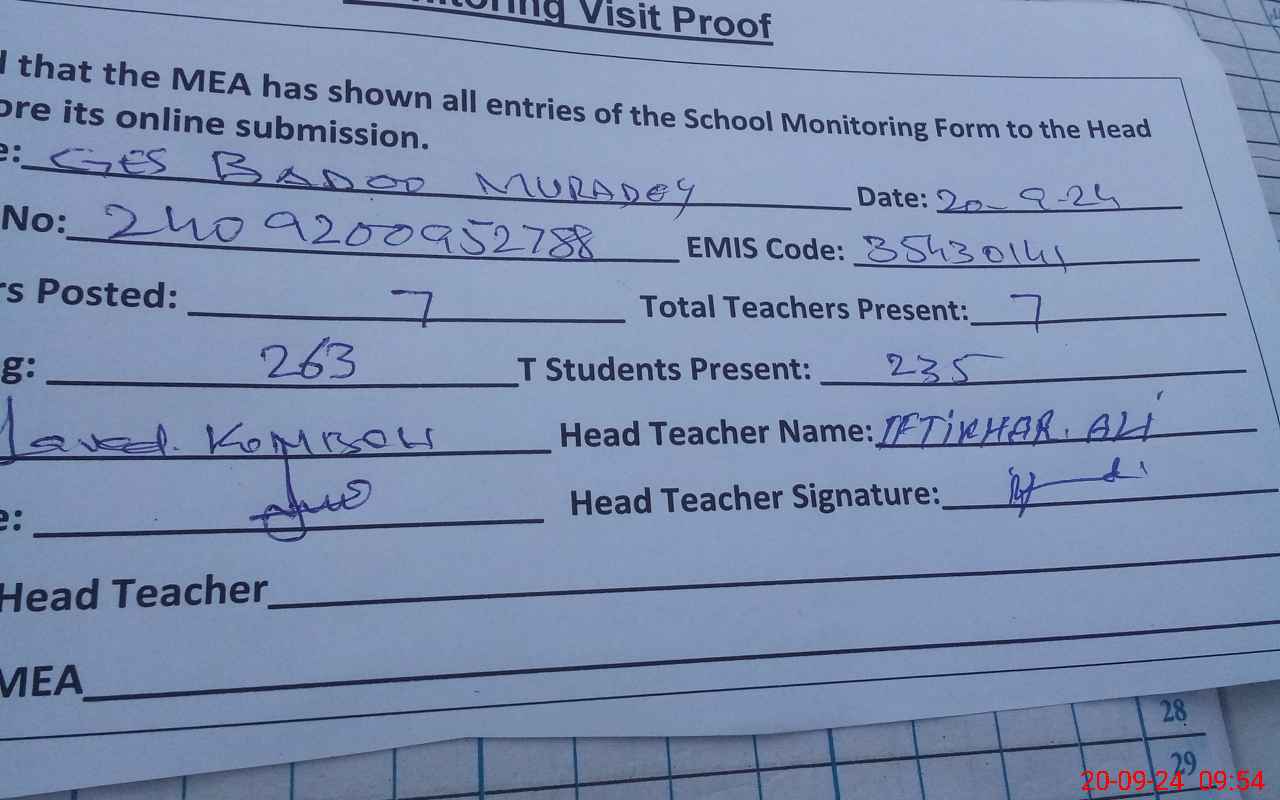 nitoring Visit Proof
d that the MEA has shown all entries of the School Monitoring Form to the Head
ore its online submission.
e: GES BADOO MURADEY Date: 20-9-24
No: 2409200952788 EMIS Code: 35430141
rs Posted: 7 Total Teachers Present: 7
g: 263 T Students Present: 235
Javed. KOMBOH Head Teacher Name: IFTIKHAR. ALI
e: Head Teacher Signature:
Head Teacher
MEA
28
29
20-09-24 09:54